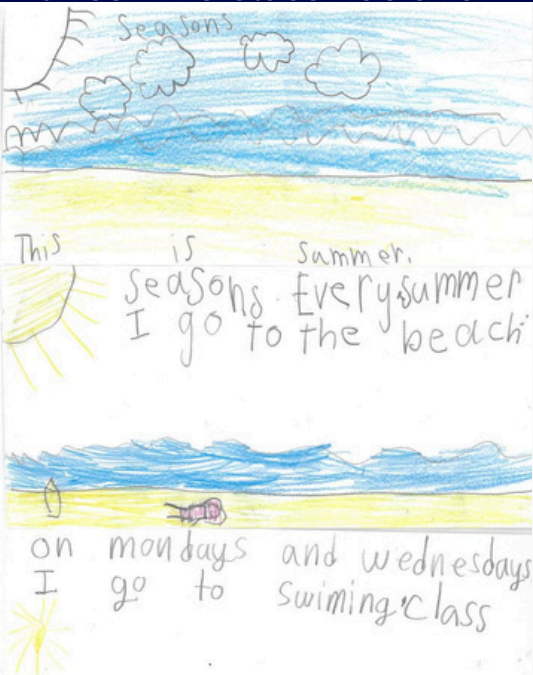 Seasons
This is summer.
Seasons Every summer
I go to the beach.
on mondays and wednesdays
I go to swiming class